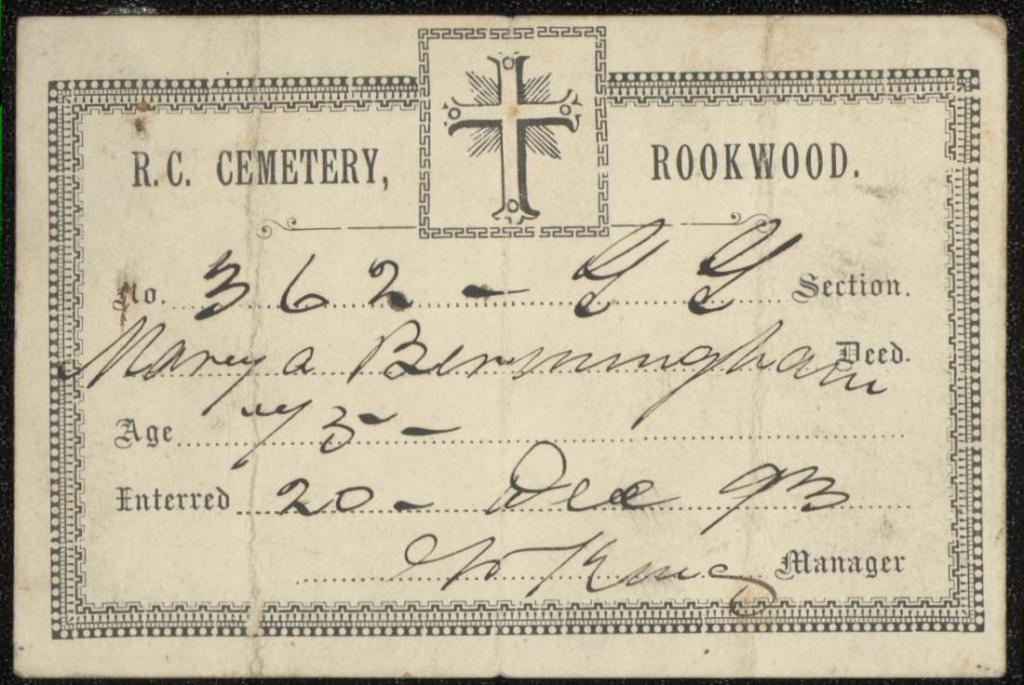 R.C. CEMETERY, ROOKWOOD.
No. 362 - Section.
Mary a Bermingham Deed.
Age 75 -
Interred 20 - Dec 93
King Manager